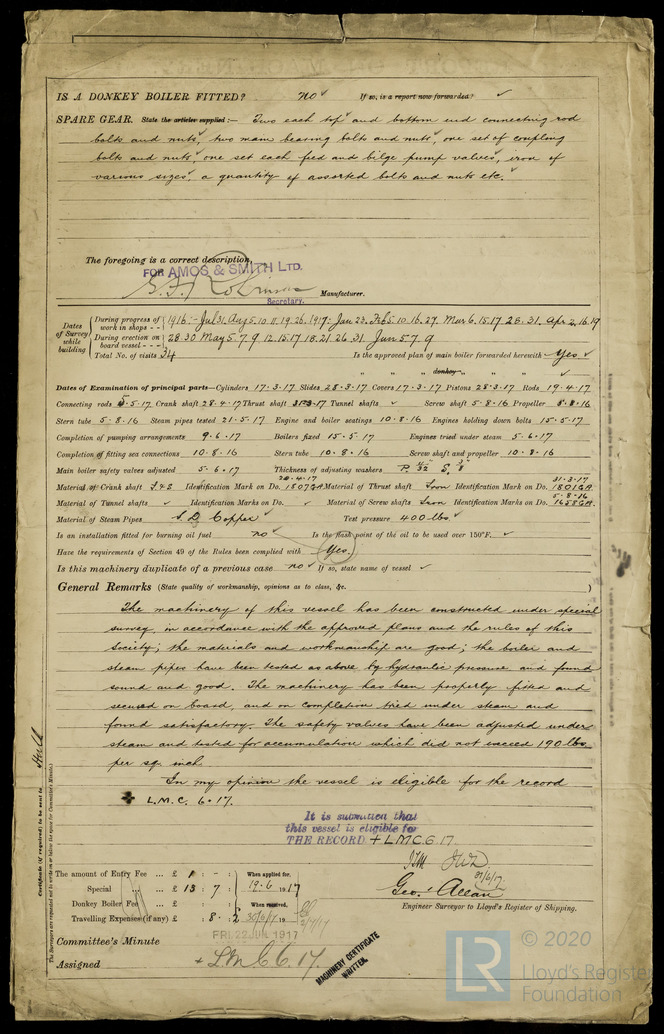 IS A DONKEY BOILER FITTED? no ✓ If so, is a report now forwarded? ✓
SPARE GEAR. State the articles supplied:— Two each top and bottom end connecting rod
bolts and nuts, two main bearing bolts and nuts, one set of coupling
bolts and nuts, one set each feed and bilge pump valves, iron of
various sizes, a quantity of assorted bolts and nuts etc.
The foregoing is a correct description,
FOR AMOS & SMITH LTD.
Robinson Manufacturer.
Secretary.
Dates of Survey while building
During progress of work in shops - - 1916:- Jul 31, Aug 5. 10. 11. 19. 26. 1917:- Jan 23. Feb 5. 10. 16. 27. Mar 6. 15. 17 28. 31. Apr 2. 16. 19
During erection on board vessel - - - 28. 30 May 5. 7. 9. 12. 15. 17. 18. 21. 26. 31 Jun 5. 7. 9
Total No. of visits 34 Is the approved plan of main boiler forwarded herewith Yes ✓
" " " donkey " " " ✓
Dates of Examination of principal parts—Cylinders 17.3.17 Slides 28.3.17 Covers 17.3.17 Pistons 28.3.17 Rods 19.4.17
Connecting rods 5.5.17 Crank shaft 28.4.17 Thrust shaft 31.3.17 Tunnel shafts ✓ Screw shaft 5.8.16 Propeller 5.8.16
Stern tube 5.8.16 Steam pipes tested 21.5.17 Engine and boiler seatings 10.8.16 Engines holding down bolts 15.5.17
Completion of pumping arrangements 9.6.17 Boilers fixed 15.5.17 Engines tried under steam 5.6.17
Completion of fitting sea connections 10.8.16 Stern tube 10.8.16 Screw shaft and propeller 10.8.16
Main boiler safety valves adjusted 5.6.17 Thickness of adjusting washers
28.4.17 31.3.17
Material of Crank shaft I & S Identification Mark on Do. 1807GA Material of Thrust shaft Iron Identification Mark on Do. 1801GA
5.8.16
Material of Tunnel shafts ✓ Identification Marks on Do. ✓ Material of Screw shafts Iron Identification Marks on Do. 1658GA.
Material of Steam Pipes S.D. Copper ✓ Test pressure 400 lbs. ✓
Is an installation fitted for burning oil fuel no ✓ Is the flash point of the oil to be used over 150°F. ✓
Have the requirements of Section 49 of the Rules been complied with Yes.
Is this machinery duplicate of a previous case no ✓ If so, state name of vessel ✓
General Remarks (State quality of workmanship, opinions as to class, &c. )
The machinery of this vessel has been constructed under special
survey in accordance with the approved plans and the rules of this
Society; the materials and workmanship are good; the boiler and
steam pipes have been tested as above by hydraulic pressure and found
sound and good. The machinery has been properly fitted and
secured on board, and on completion tried under steam and
found satisfactory. The safety valves have been adjusted under
steam and tested for accumulation which did not exceed 190 lbs.
per sq. inch.
In my opinion the vessel is eligible for the record
✠ L.M.C. 6.17.
It is submitted that
this vessel is eligible for
THE RECORD + LMC 6.17.
The amount of Entry Fee ... £ 1 : - : When applied for,
Special ... £ 13 : 7 : 19.6.1917
Donkey Boiler Fee ... £ : : When received,
Travelling Expenses (if any) £ : 8 : 2
Geo. Allan
Engineer Surveyor to Lloyd's Register of Shipping.
FRI. 22 JUN. 1917
Committee's Minute
Assigned + LMC 6.17.
MACHINERY CERTIFICATE
WRITTEN.
Certificate (if required) to be sent to Hull
(The Surveyors are requested not to write on or below the space for Committee's Minute.)
LR © 2020
Lloyd's Register
Foundation